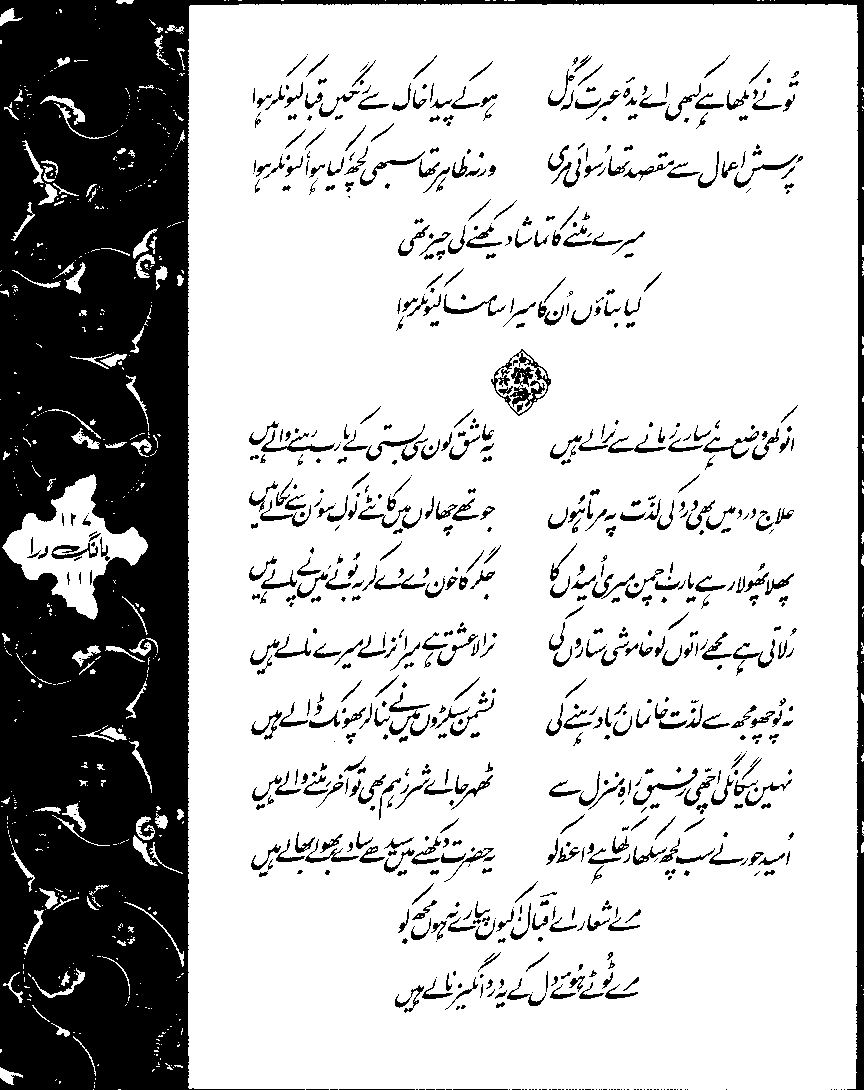 تُو نے دیکھا ہے کبھی اے دیدۂ عبرت کہ گُل ہو کے پیدا خاک سے رنگیں قبا کیونکر ہوا
پُرسشِ اعمال سے مقصد تھا رُسوائی مری ورنہ ظاہر تھا سبھی کچھ، کیا ہوا، کیونکر ہوا
میرے مٹنے کا تماشا دیکھنے کی چیز تھی
کیا بتاؤں اُن کا میرا سامنا کیونکر ہوا
انوکھی وضع ہے، سارے زمانے سے نرالے ہیں یہ عاشق کون سی بستی کے یارب رہنے والے ہیں
علاجِ درد میں بھی درد کی لذّت پہ مرتا ہُوں جو تھے چھالوں میں کانٹے، نوکِ سوزن سے نکالے ہیں
پھلا پھُولا رہے یارب! چمن میری اُمیدوں کا جگر کا خون دے دے کر یہ بُوٹے مَیں نے پالے ہیں
رُلاتی ہے مجھے راتوں کو خاموشی ستاروں کی نرالا عشق ہے میرا، نرالے میرے نالے ہیں
نہ پُوچھو مجھ سے لذّت خانماں برباد رہنے کی نشیمن سیکڑوں میں نے بنا کر پھونک ڈالے ہیں
نہیں بیگانگی اچھّی رفیقِ راہِ منزل سے ٹھہر جا اے شرر، ہم بھی تو آخر مٹنے والے ہیں
اُمیدِ حور نے سب کچھ سِکھا رکھّا ہے واعظ کو یہ حضرت دیکھنے میں سیدھے سادے، بھولے بھالے ہیں
مرے اشعار اے اقبالؔ! کیوں پیارے نہ ہوں مجھ کو
مرے ٹُوٹے ہُوئے دل کے یہ درد انگیز نالے ہیں
١٢٧
بانگِ درا
١١١